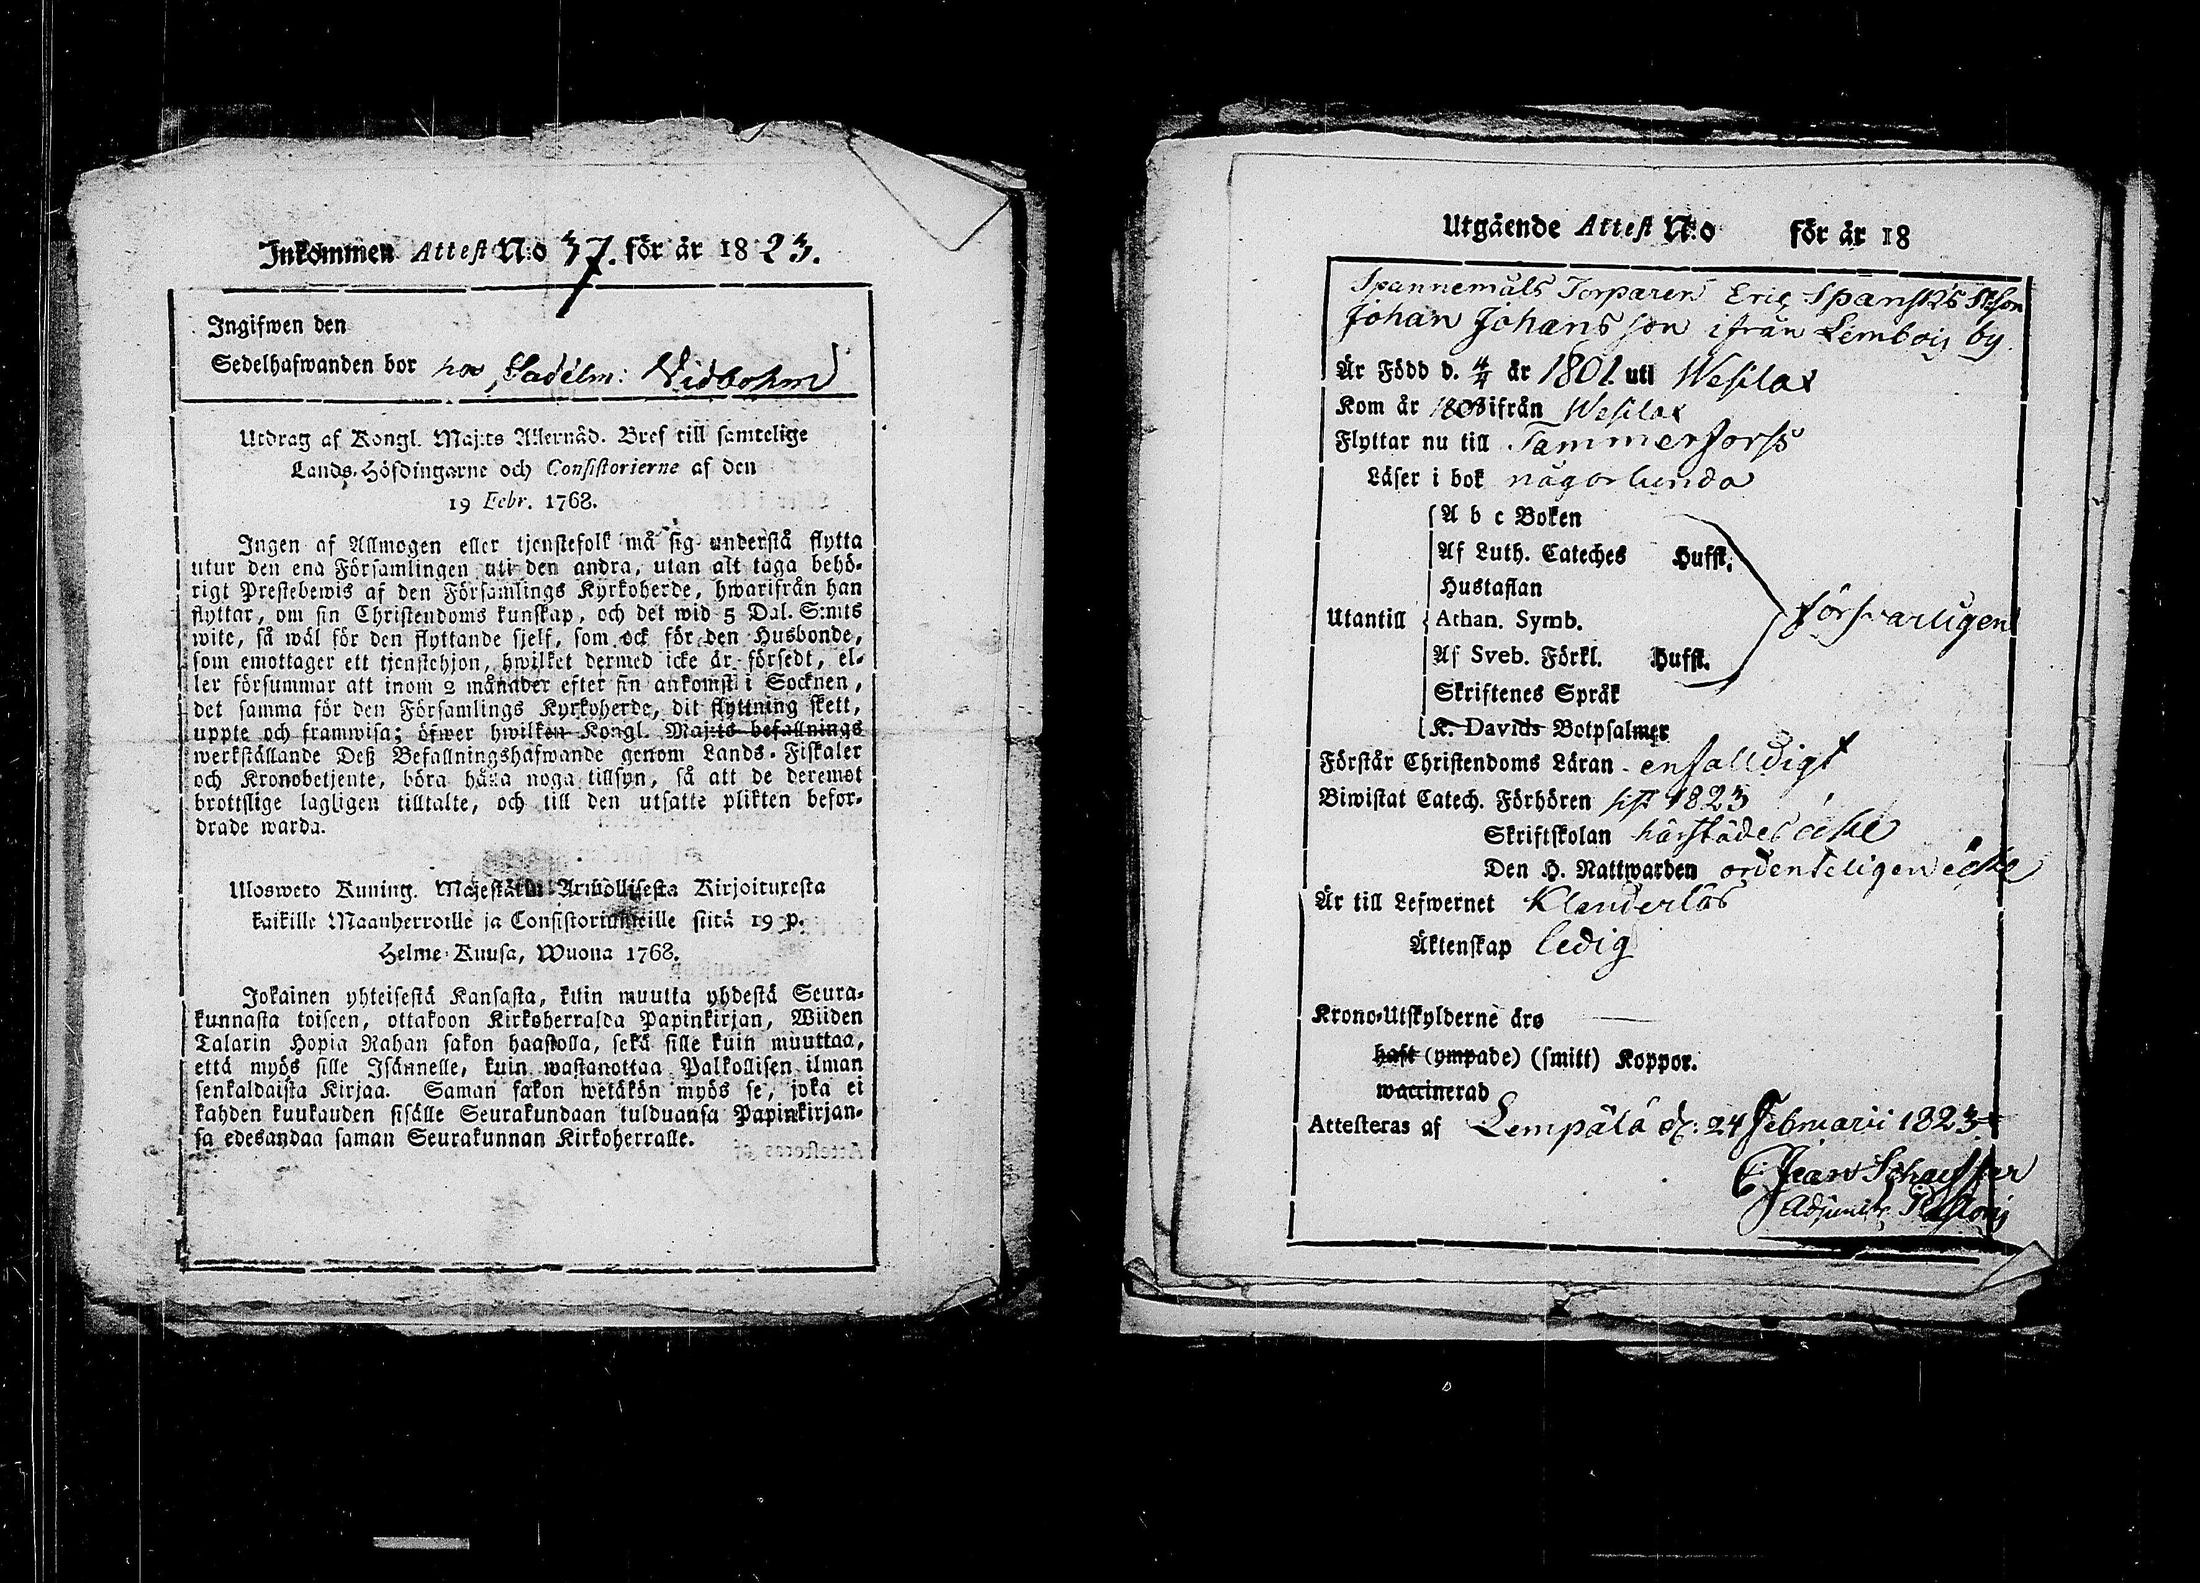 Inkommen Attest N:o 37. för år 1823.
Ingifwen den
Sedelhafwanden bor hos Sadelm: Widbohm
Utdrag af Kongl. Maj:ts Allernåd. Bref till samtelige
Lands-Höfdingarne och Consistorierne af den
19 Febr. 1768.
Ingen af Allmogen eller tjenstefolk må sig understå flytta
utur den ena Församlingen uti den andra, utan alt taga behö-
rigt Prestebewis af den Församlings Kyrkoherde, hwarifrån han
flyttar, om sin Christendoms kunskap, och det wid 5 Dal. S:mts
wite, så wäl för den flyttande sjelf, som ock för den Husbonde,
som emottager ett tjenstehjon, hwilket dermed icke är försedt, el-
ler försummar att inom 2 månader efter sin ankomst i Socknen,
det samma för den Församlings Kyrkoherde, dit flyttning skett,
uppte och framwisa; öfwer hwilken Kongl. Maj:ts befallnings
werkställande Deß Befallningshafwande genom Lands-Fiskaler
och Kronobetjente, böra hålla noga tillsyn, så att de deremot
brottslige lagligen tilltalte, och till den utsatte plikten befor-
drade warda.
Ulosweto Kuning. Majestätin Armollisesta Kirjoituxesta
kaikille Maanherroille ja Consistoriumeille siitä 19 p.
Helme-Kuusa, Wuona 1768.
Jokainen yhteisestä Kansasta, kuin muutta yhdestä Seura-
kunnasta toiseen, ottakoon Kirkoherralda Papinkirjan, Wiiden
Talarin Hopia Rahan sakon haastolla, sekä sille kuin muuttaa,
että myös sille Isännelle, kuin wastanottaa Palkollisen ilman
senkaldaista Kirjaa. Saman sakon wetäkön myös se, joka ei
kahden kuukauden sisälle Seurakundaan tulduansa Papinkirjan-
sa edesandaa saman Seurakunnan Kirkoherralle.
Utgående Attest N:o för år 18
Spannemåls Torparen Eric Spansks St:son
Johan Johansson ifrån Lembois by.
Är Född d. 4/4 år 1801. uti Wesilax
Kom år 1803 ifrån Wesilax
Flyttar nu till Tammerforss
Läser i bok någorlunda
A b c Boken
Af Luth. Cateches Hufst.
Hustaflan
Utantill Athan. Symb. försvarligen
Af Sveb. Förkl. Hufst.
Skriftenes Språk
K. Davids Botpsalmer
Förstår Christendoms Läran enfalldigt
Biwistat Catech. Förhören sist 1823
Skriftskolan härstädes icke
Den H. Nattwarden ordenteligen icke
Är till Lefwernet Klanderlös
Äktenskap ledig
Krono-Utskylderne äro
haft (ympade) (smitt) Koppor.
waccinerad
Attesteras af Lempälä d: 24 Februarii 1823
Jean Scheffer
Adjunct: Pastoris